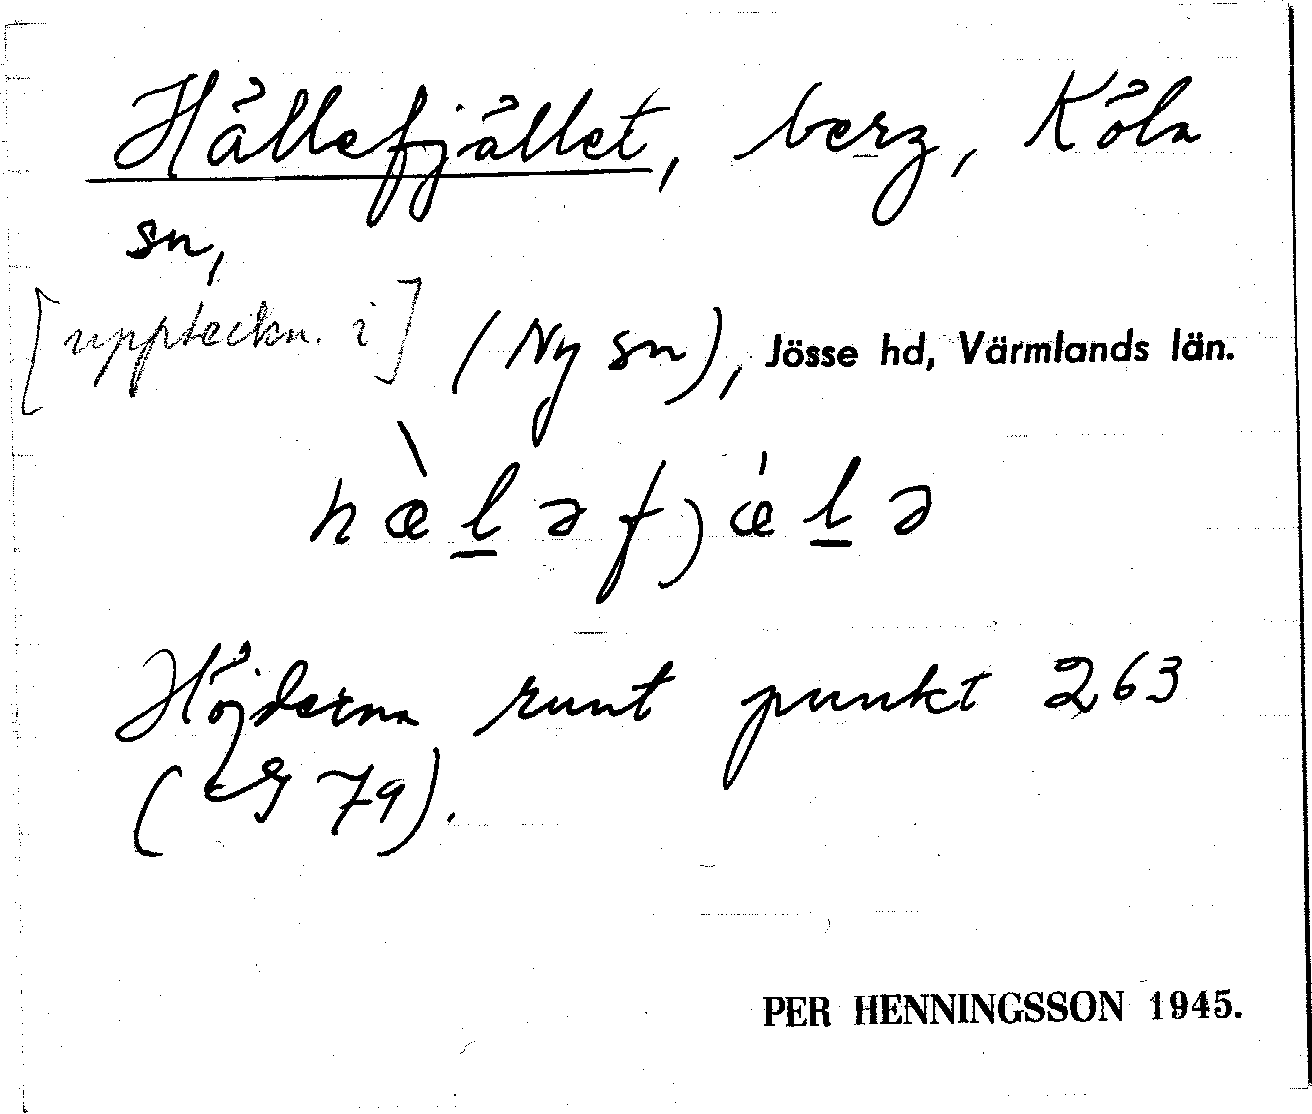 Hällefjället, berg, Köla
sn,
[uppteckn. i] (Ny sn), Jösse hd, Värmlands län.
hæ̀l̠əfjæ̍l̠ə
Höjderna runt punkt 263
(eg 79).
PER HENNINGSSON 1945.